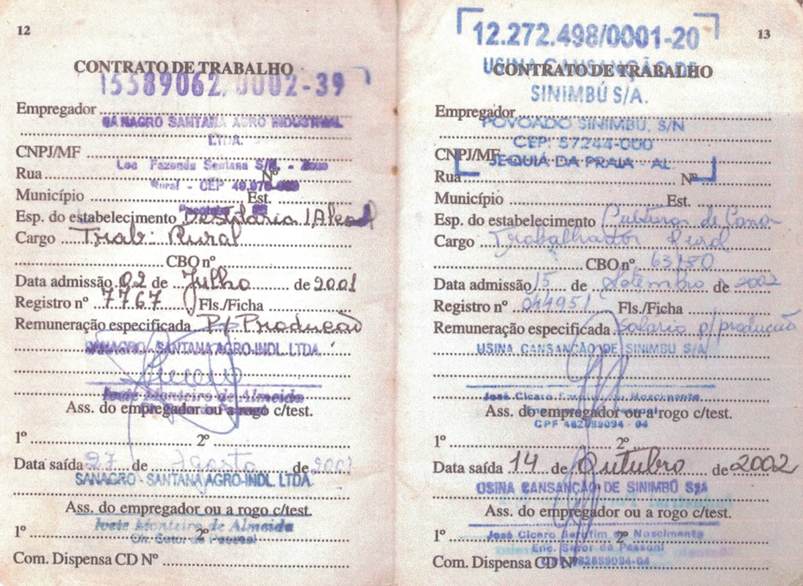 12
CONTRATO DE TRABALHO
15589062/0002-39
Empregador
SANAGRO SANTANA AGRO INDUSTRIAL
LTDA.
CNPJ/MF
Loc Fazenda Santana S/N - Zona
Rua Nº
Rural - CEP
Município Est.
Esp. do estabelecimento Destilaria /Alcool
Cargo Trab. Rural
CBO nº
Data admissão 02 de Julho de 2001
Registro nº 7767 Fls./Ficha
Remuneração especificada P/ Produção
SANAGRO - SANTANA AGRO-INDL. LTDA.
Ivete Monteiro de Almeida
Ass. do empregador ou a rogo c/test.
1º 2º
Data saída 27 de Agosto de 2001
SANAGRO - SANTANA AGRO-INDL. LTDA.
Ass. do empregador ou a rogo c/test.
Ivete Monteiro de Almeida
1º 2º
Ch. Setor de Pessoal
Com. Dispensa CD Nº
13
12.272.498/0001-20
USINA CANSANÇÃO DE
CONTRATO DE TRABALHO
SINIMBÚ S/A.
Empregador
POVOADO SINIMBU, S/N
CEP: 57244-000
CNPJ/MF
JEQUIÁ DA PRAIA AL
Rua Nº
Município Est.
Esp. do estabelecimento Culturas de Cana
Cargo Trabalhador Rural
CBO nº 63180
Data admissão 15 de Setembro de 2002
Registro nº 044951 Fls./Ficha
Remuneração especificada Salário p/produção
USINA CANSANÇÃO DE SINIMBU S/A
José Cicero Nascimento
Ass. do empregador ou a rogo c/test.
CPF 482689094-04
1º 2º
Data saída 14 de Outubro de 2002
USINA CANSANÇÃO DE SINIMBÚ S/A
Ass. do empregador ou a rogo c/test.
José Cicero Serafim do Nascimento
1º 2º
Enc. Setor de Pessoal
Com. Dispensa CD Nº